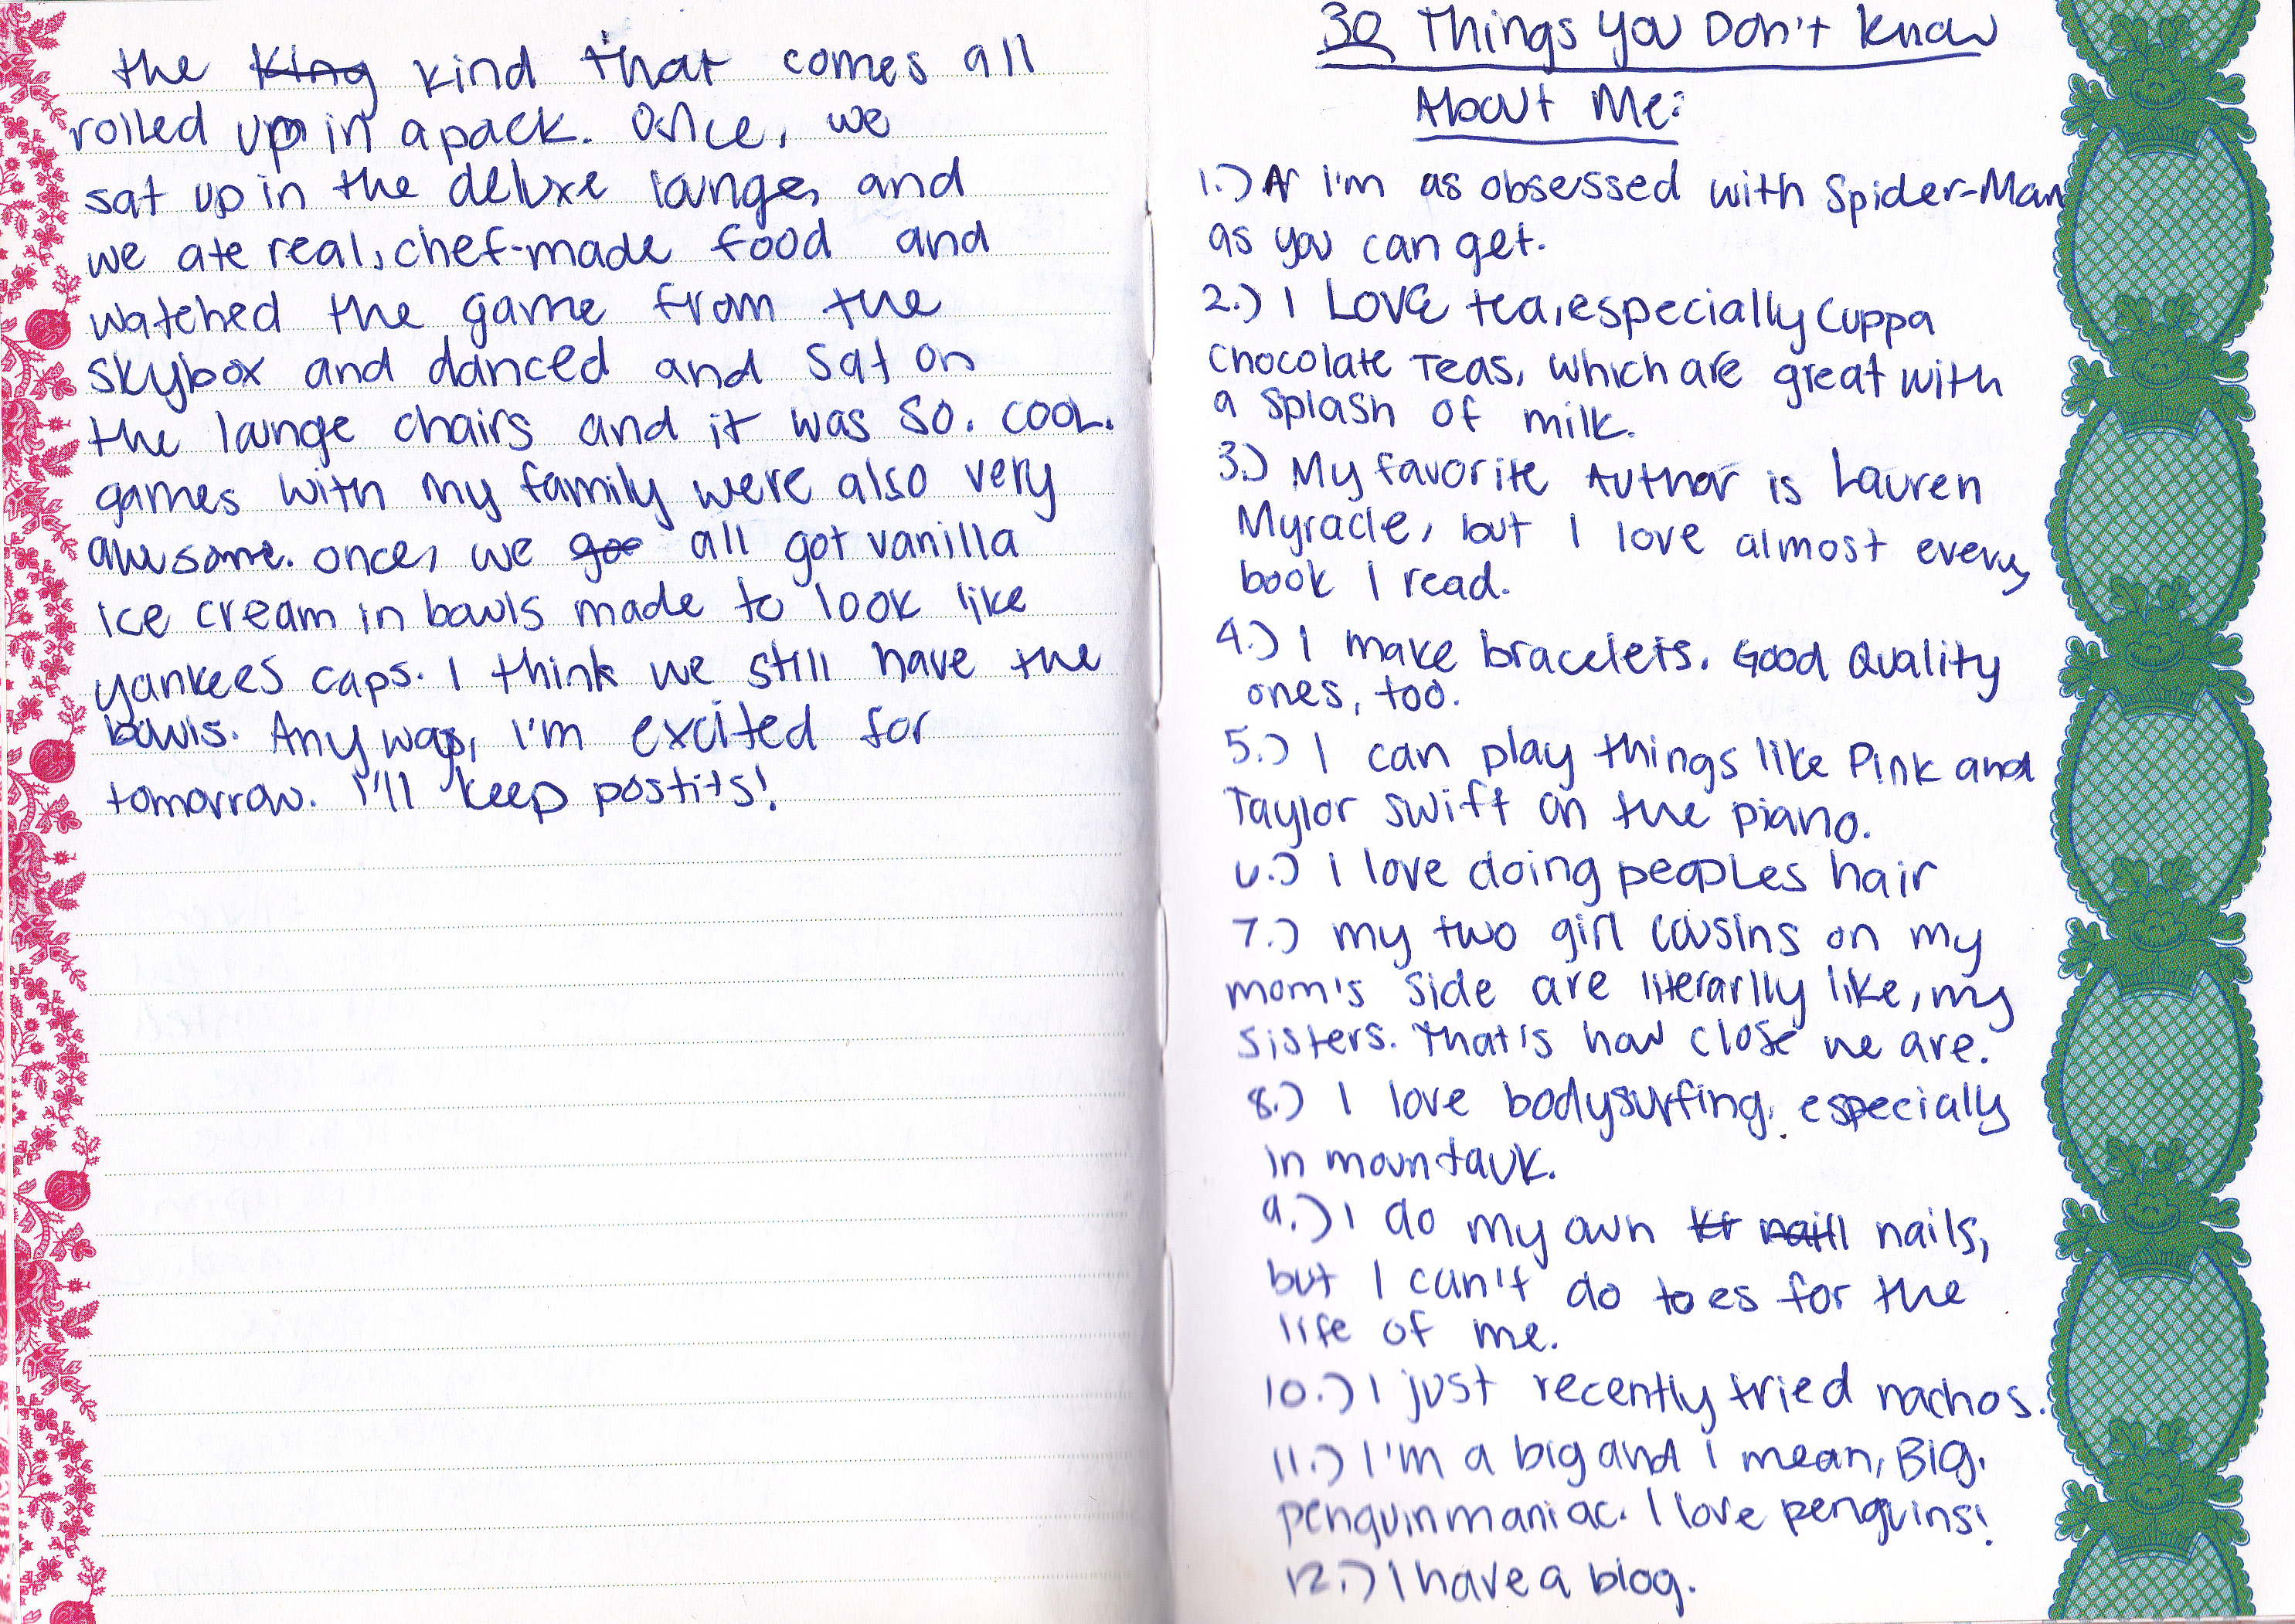 the King kind that comes all
rolled up in a pack. Once, we
sat up in the deluxe lounge, and
we ate real, chef-made food and
watched the game from the
skybox and danced and sat on
the lounge chairs and it was SO. COOL.
games with my family were also very
awesome. once, we goo all got vanilla
ice cream in bowls made to look like
yankees caps. I think we still have the
bowls. Anyway, I'm excited for
tomorrow. I'll keep postits!
30 Things You Don't Know
About Me:
1.) A I'm as obsessed with Spider-Man
as you can get.
2.) I LOVE tea, especially Cuppa
Chocolate Teas, which are great with
a splash of milk.
3.) My favorite Author is Lauren
Myracle, but I love almost every
book I read.
4.) I make bracelets. Good Quality
ones, too.
5.) I can play things like Pink and
Taylor Swift on the piano.
6.) I love doing peoples hair
7.) my two girl cousins on my
mom's side are literarlly like, my
sisters. That's how close we are.
8.) I love bodysurfing, especially
in mountauk.
9.) I do my own kr naill nails,
but I can't do toes for the
life of me.
10.) I just recently tried nachos.
11.) I'm a big and I mean, BIG,
penguin maniac. I love penguins!
12.) I have a blog.